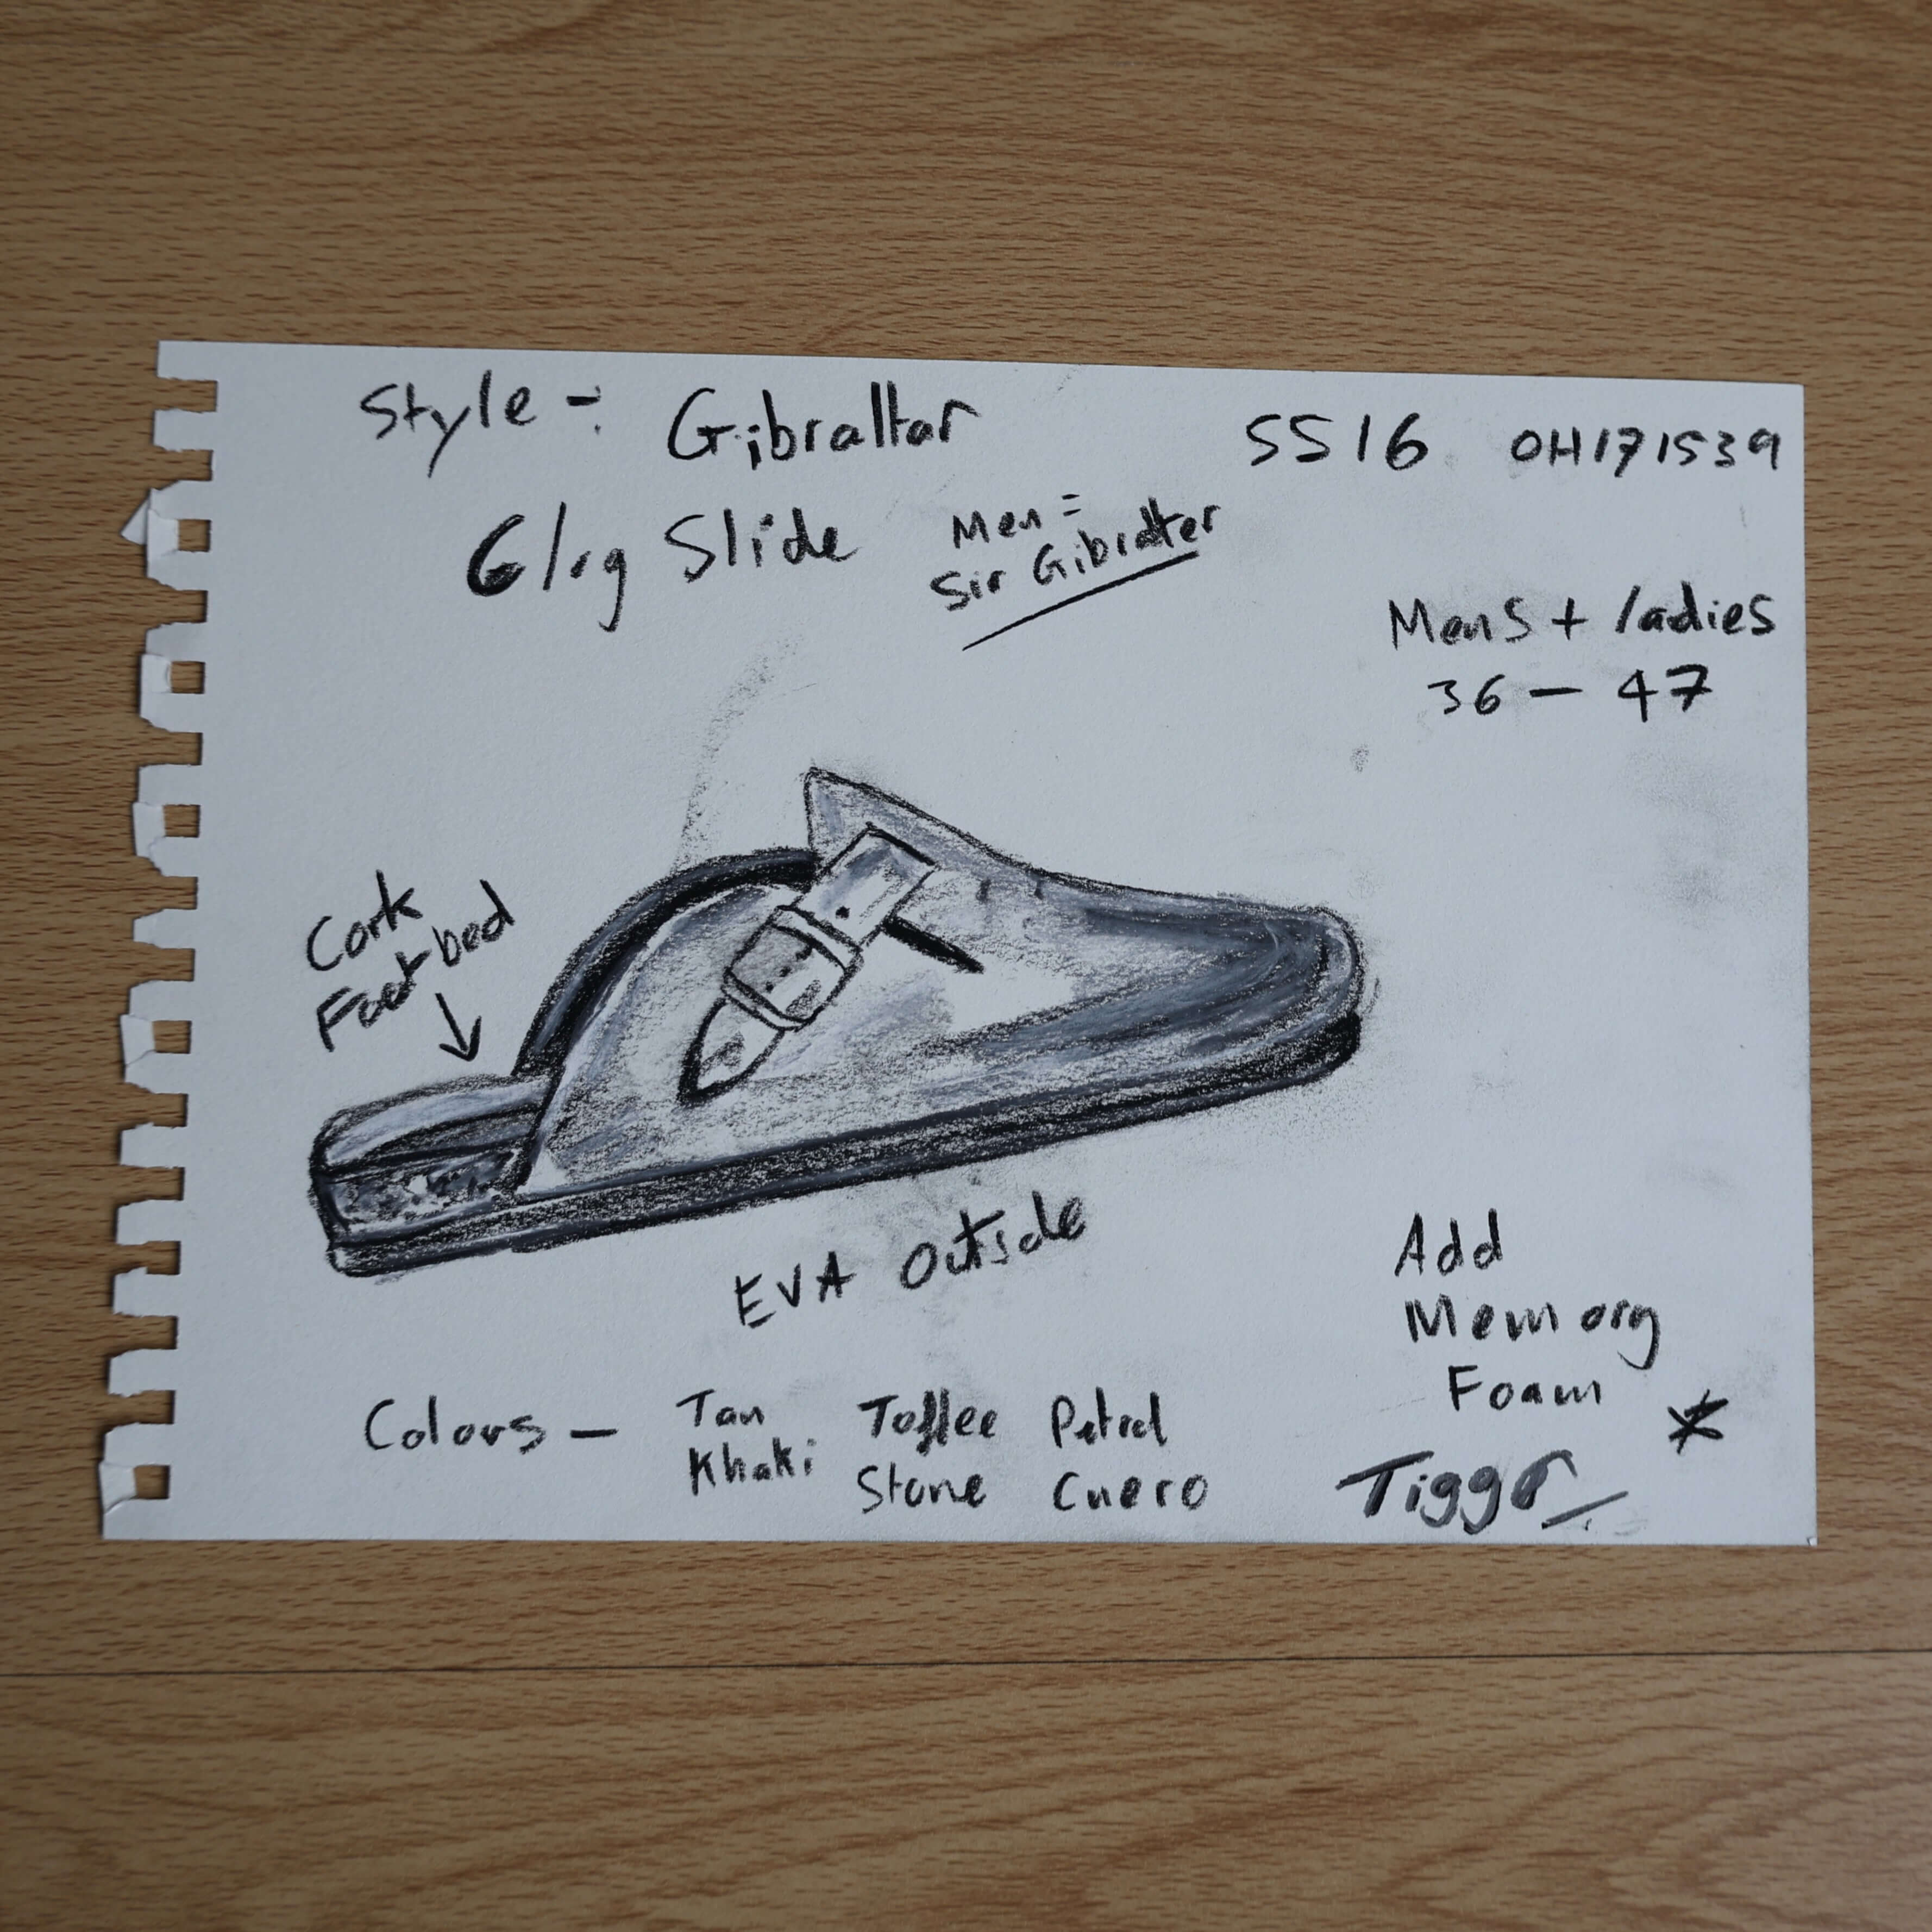 Style -: Gibraltar
SS16 OH171539
Slide
Men =
Sir Gibralter
Mens + ladies
36 - 47
Cork
Footbed
EVA Outside
Add
Memory
Foam *
Colours - Tan Toffee Petrol
Khaki Stone Cuero